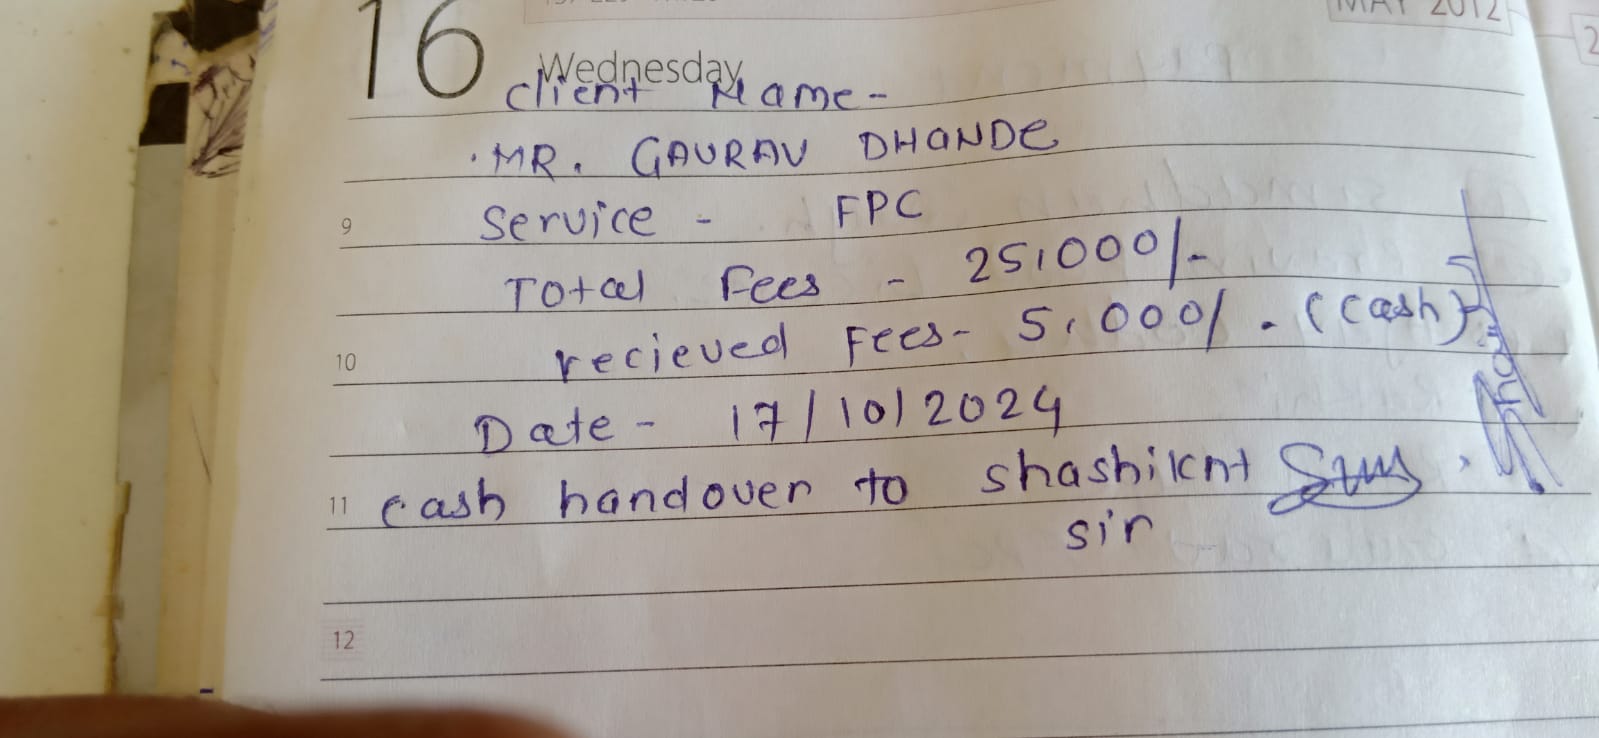 MAY 2012
16
Wednesday
Client Name-
MR. GAURAV DHANDE
9
Service - FPC
Total Fees - 25,000/-
10
recieved Fees- 5,000/. (cash)
Date - 17/10/2024
11
cash handover to shashiknt
sir
12